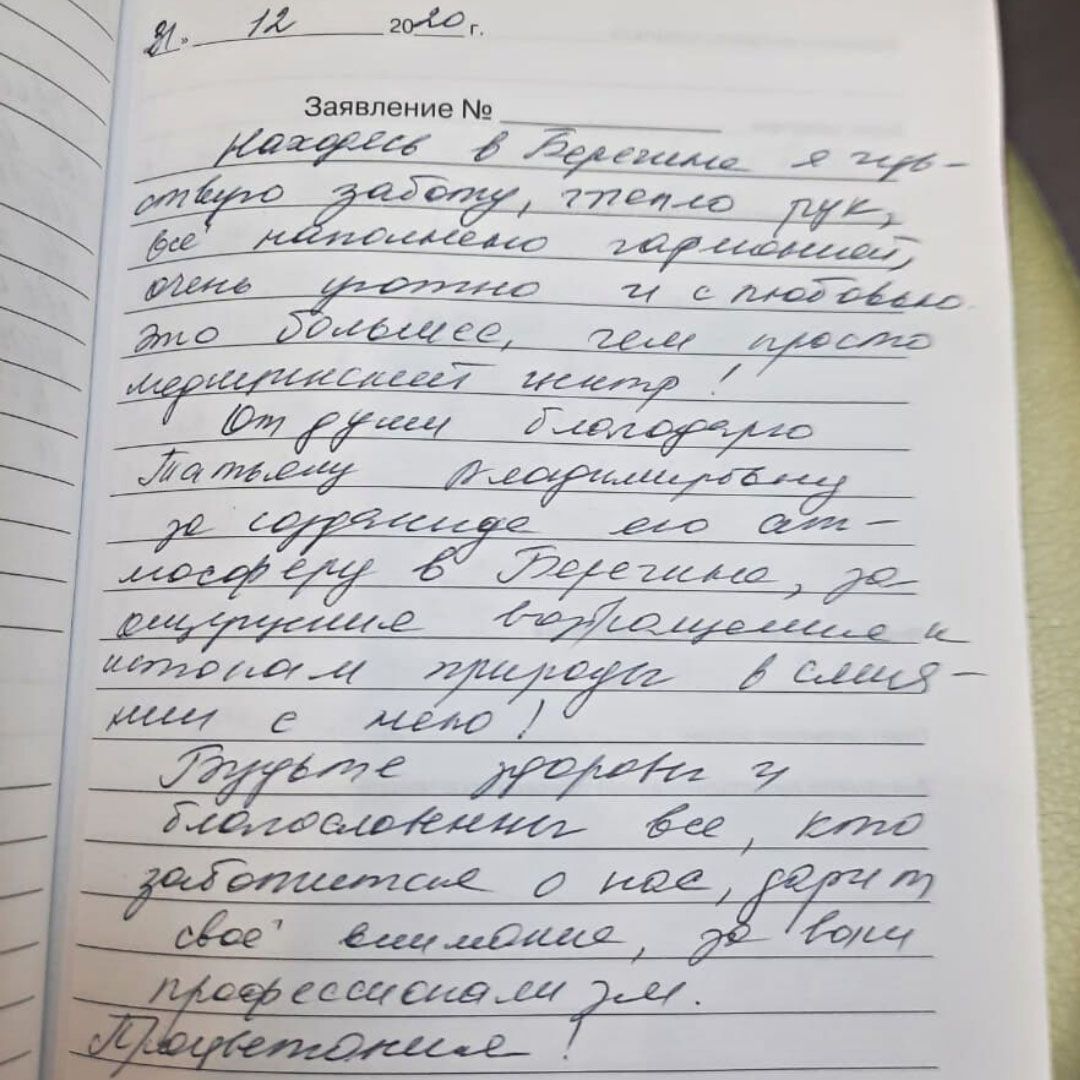 21. 12 2020 г.
Заявление №
Находясь в Берегине я чув-
ствую заботу, тепло рук,
всё наполнено гармонией,
очень уютно и с любовью.
Это большее, чем просто
медицинский центр!
От души благодарю
Татьяну Владимировну
за создание ею ат-
мосферу в Берегине, за
ощущения возвращения к
истокам природы в слия-
нии с нею!
Будьте здоровы и
благословенны все, кто
заботится о нас, дарит
своё внимание, за ваш
профессионализм.
Процветания!